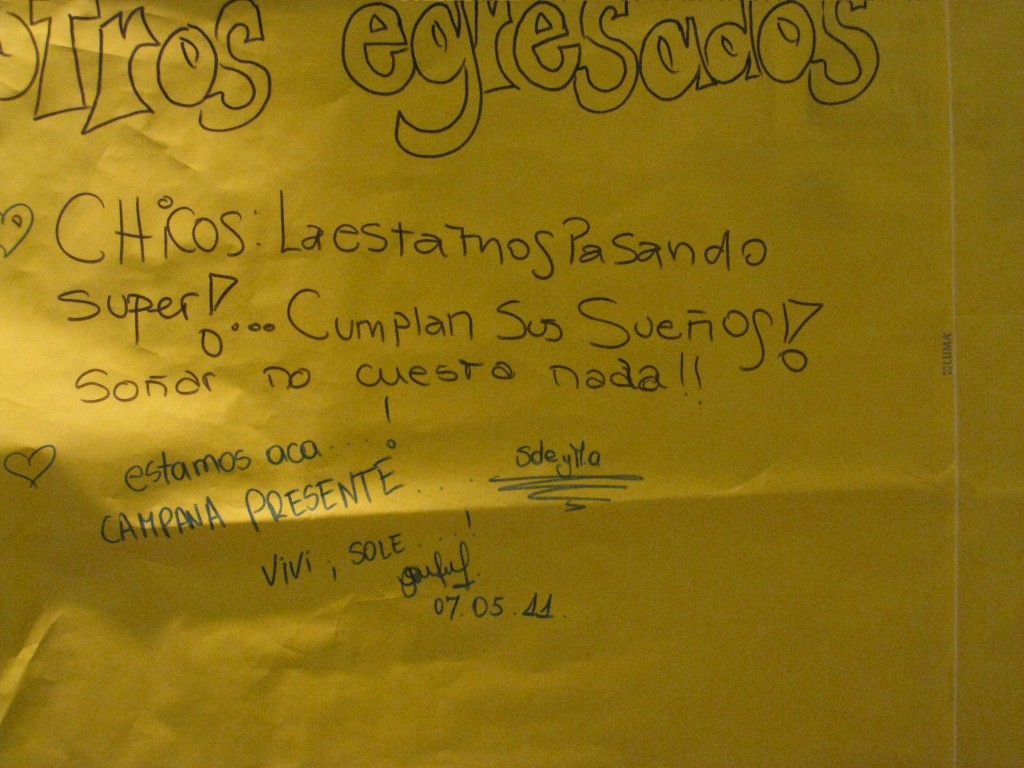 otros egresados
CHICOS: La estamos Pasando
super!... Cumplan Sus Sueños!
Soñar no cuesta nada!!
estamos aca....!
CAMPANA PRESENTE....
VIVI, SOLE....!
07.05.11.
LUMA